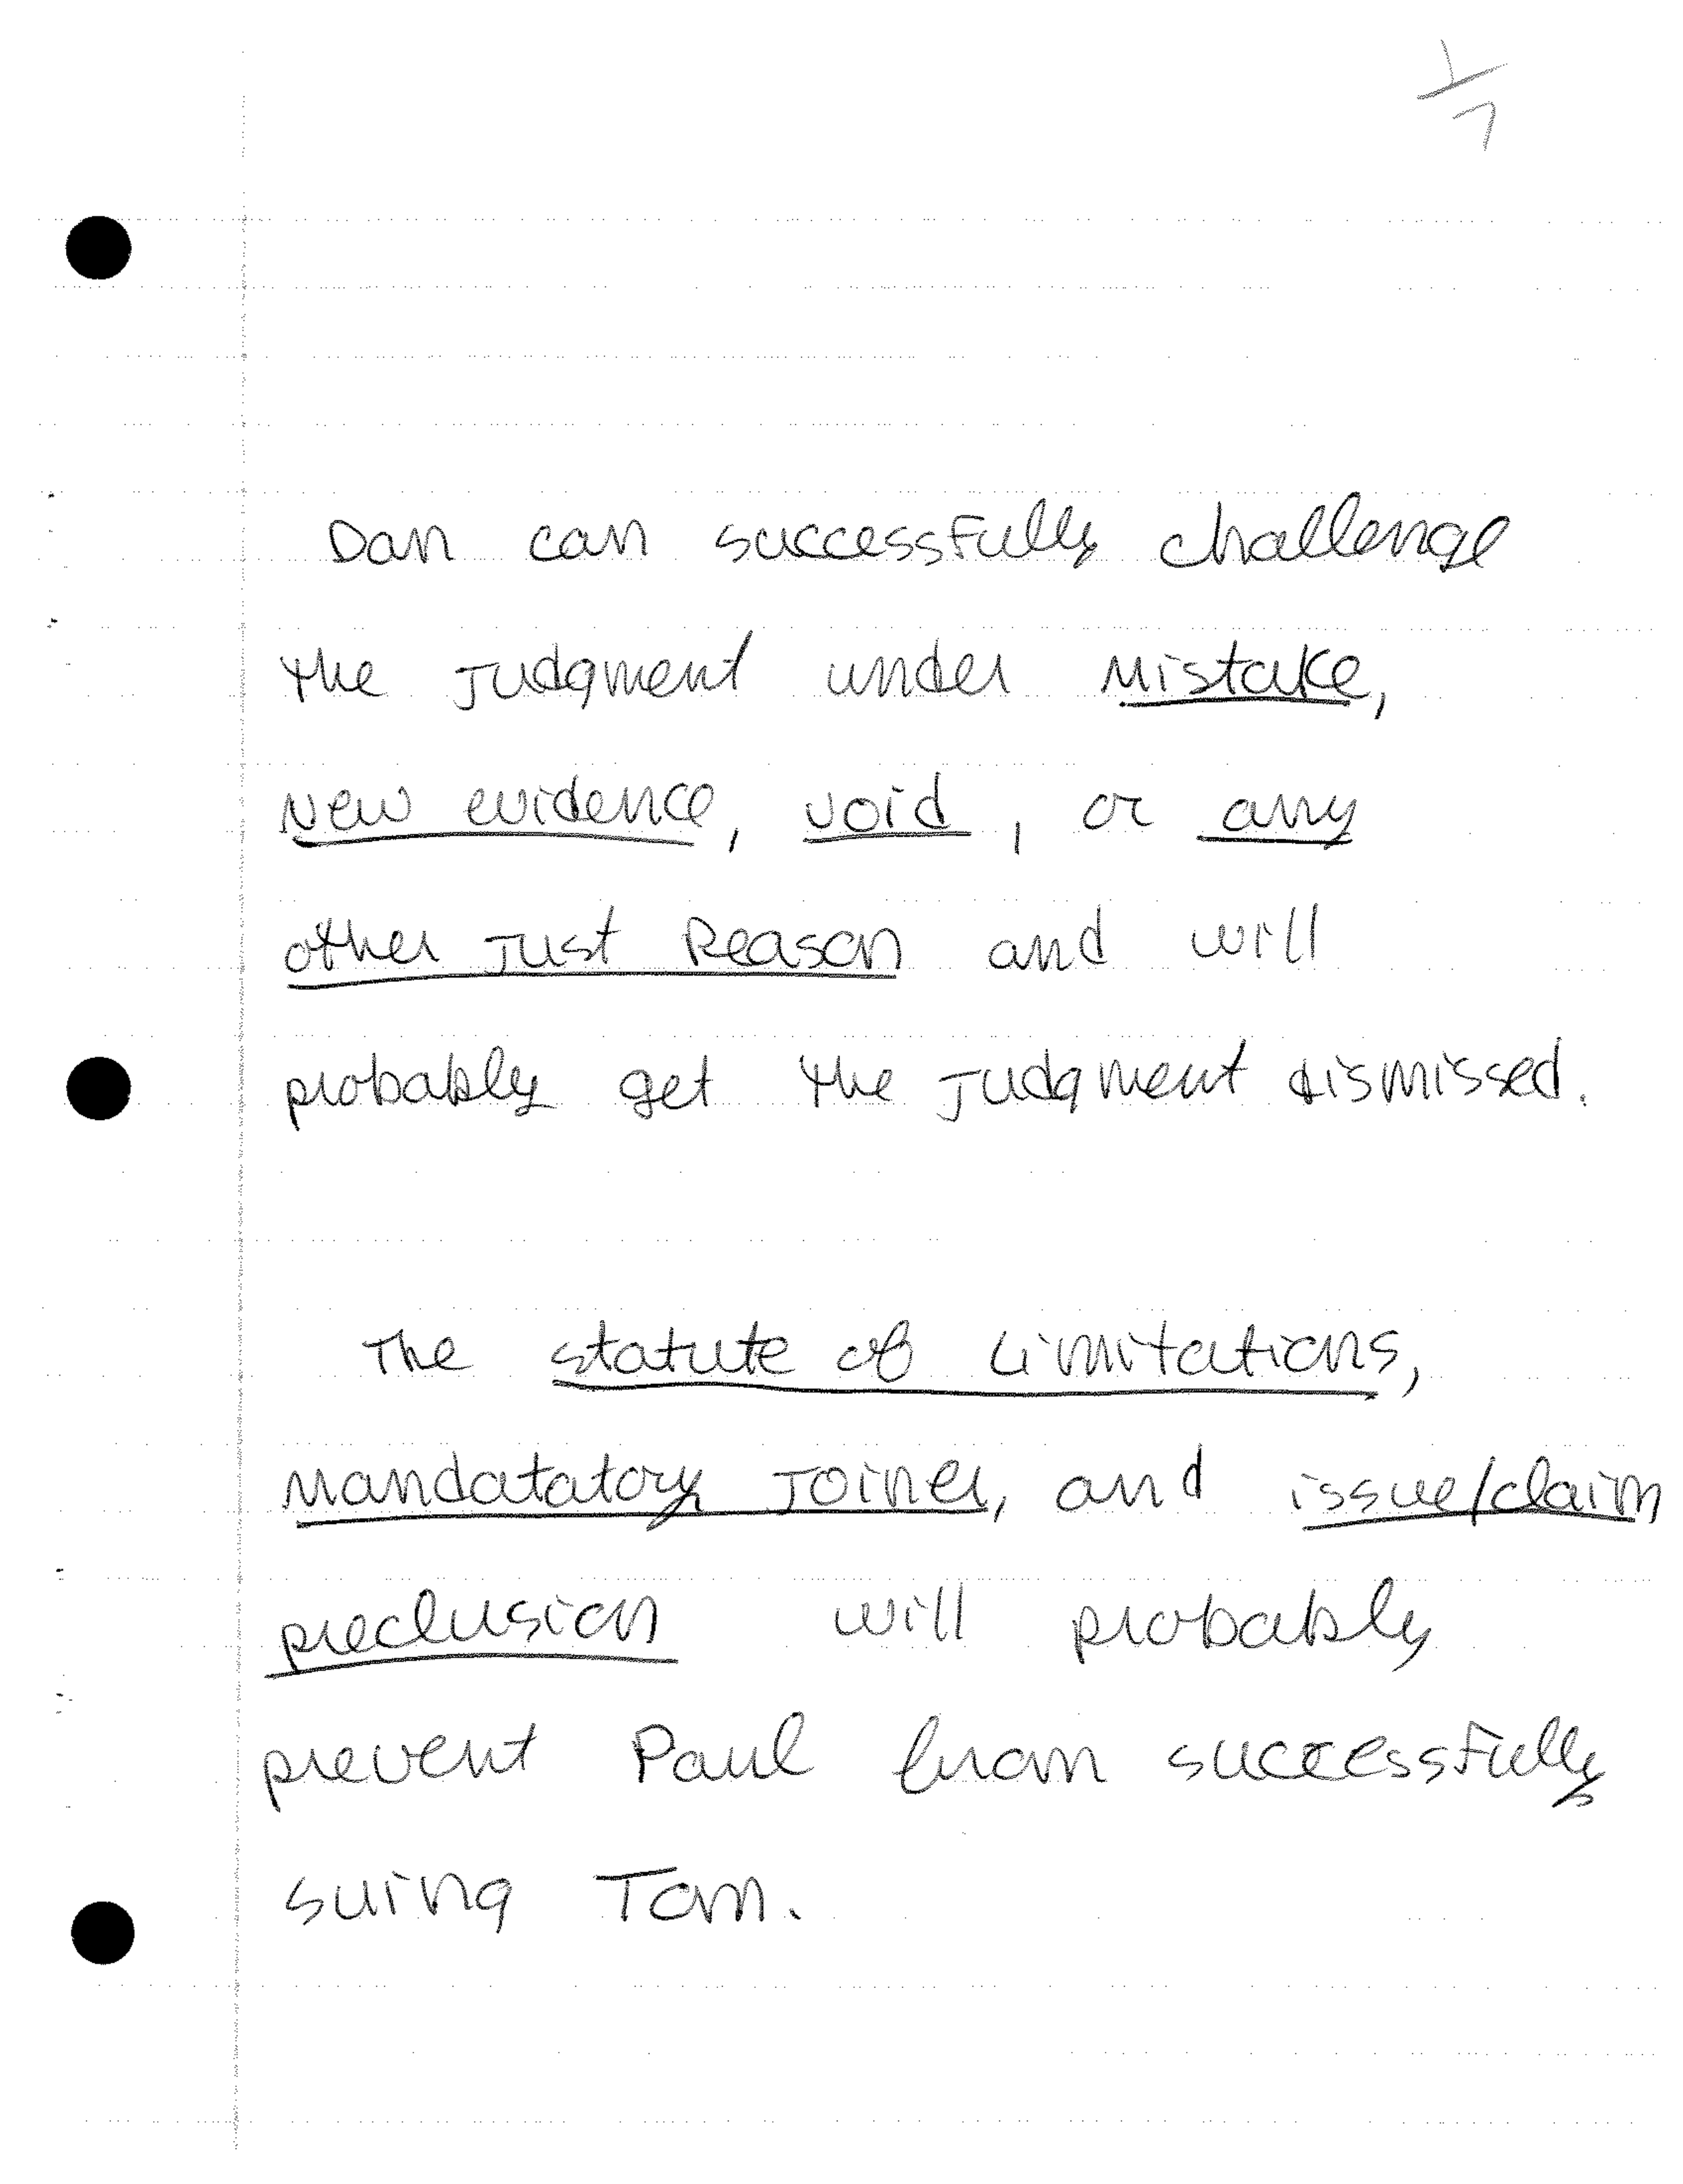 1/7
Dan can successfully challenge
the Judgment under Mistake,
New evidence, void, or any
other Just Reason and will
probably get the Judgment dismissed.
The statute of Limitations,
Mandatatory Joiner, and issue/claim
preclusion will probably
prevent Paul from successfully
suing Tom.